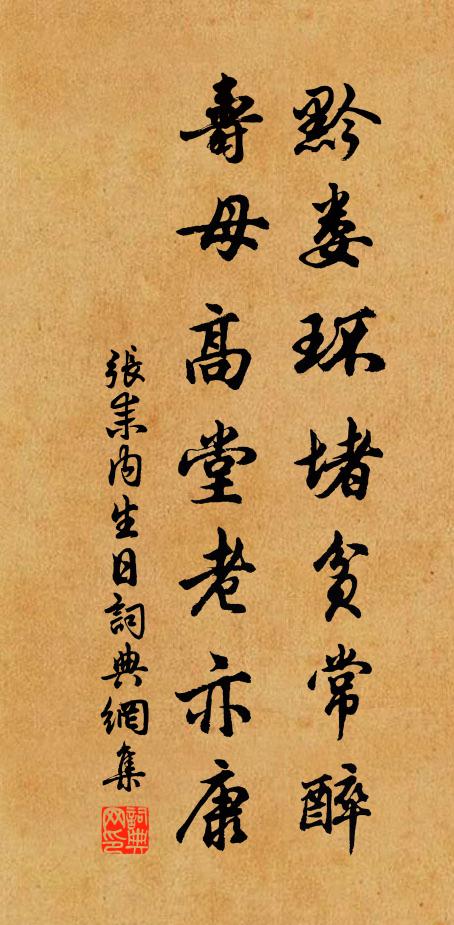 黔婁环堵貧常醉
壽母高堂老亦康
張耒内生日詞典網集
詞典网印